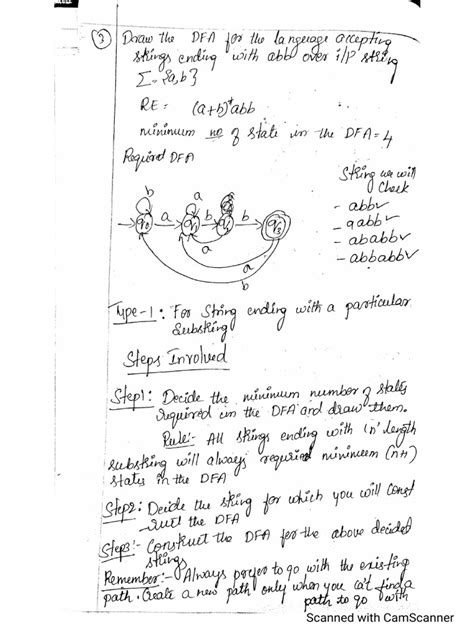 ③ Draw the DFA for the language accepting
strings ending with abb over i/p string
Σ = {a,b}
RE = (a+b)*abb
minimum no of state in the DFA = 4
Required DFA
String we will
Check
- abb✓
- aabb✓
- ababb✓
- abbabb✓
b a
q0 a q1 b b q3
a
a
b
Type-1 : For String ending with a particular
Substring
Steps Involved
Step1: Decide the minimum number of states
required in the DFA and draw them.
Rule:- All strings ending with 'n' length
substring will always required minimum (n+1)
states in the DFA
Step2: Decide the string for which you will const
-ruct the DFA
Step3:- Construct the DFA for the above decided
strings
Remember:- Always prefer to go with the existing
path. Create a new path only when you can't find a
path to go with
Scanned with CamScanner